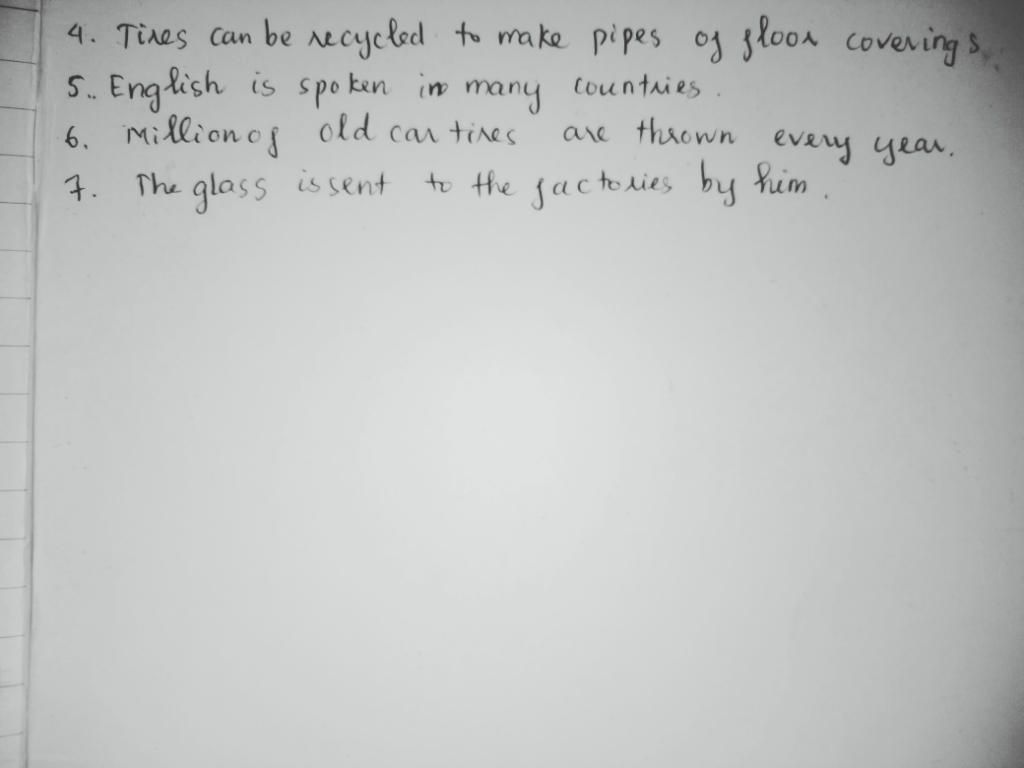 4. Tires can be recycled to make pipes of floor coverings.
5. English is spoken in many countries.
6. Million of old car tires are thrown every year.
7. The glass is sent to the factories by him.